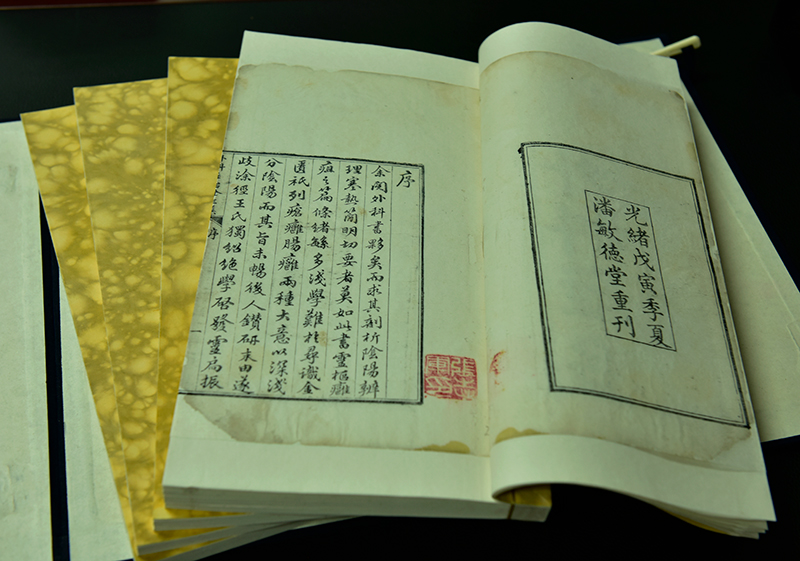 光緒戊寅季夏
潘敏德堂重刊
序
余閱外科書夥矣而求其剖析陰陽辨
理寒熱簡明切要者莫如此書靈樞癰
疽之篇條緒緐多淺學難於尋識金
匱祇列瘡癰腸癰兩種大意以深淺
分陰陽而其旨未暢後人鑽研末由遂
歧涂徑王氏獨紹絕學啓發靈扃振